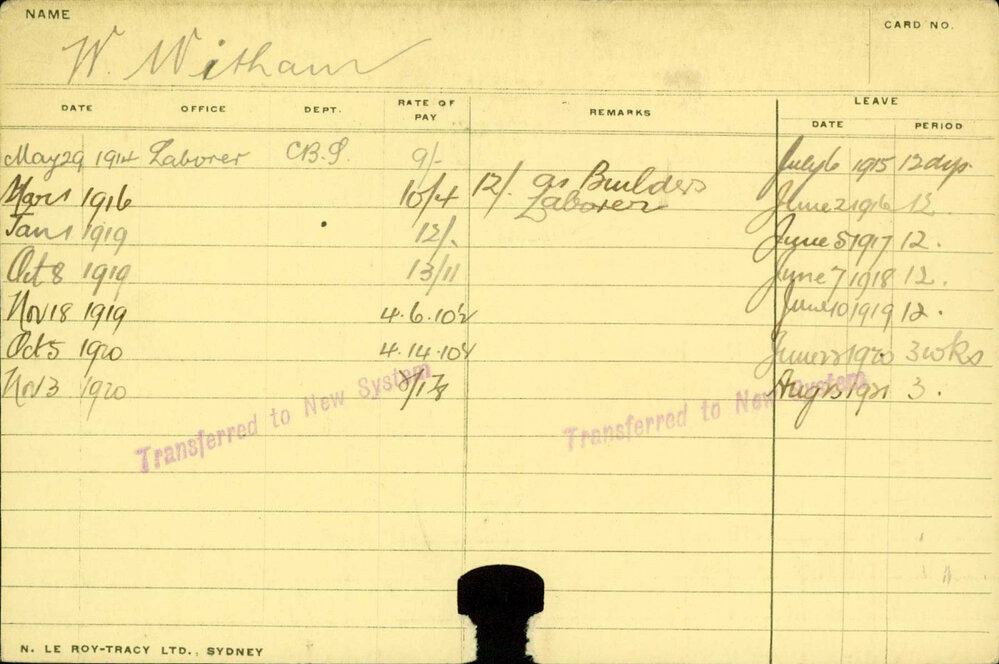 NAME
CARD NO.
W. Witham
DATE OFFICE DEPT. RATE OF PAY REMARKS LEAVE DATE PERIOD
May 29 1914 Laborer C.B.S. 9/- July 6 1915 12 dys
Mar 1 1916 10/4 12/. as Builders Laborer June 2 1916 12
Jan 1 1919 12/. June 5 1917 12.
Oct 8 1919 13/11 June 7 1918 12.
Nov 18 1919 4.6.10½ June 10 1919 12.
Oct 5 1920 4.14.10½ June 1920 3 wks
Nov 3 1920 Aug 1921 3.
Transferred to New System
Transferred to New System
N. LE ROY-TRACY LTD., SYDNEY